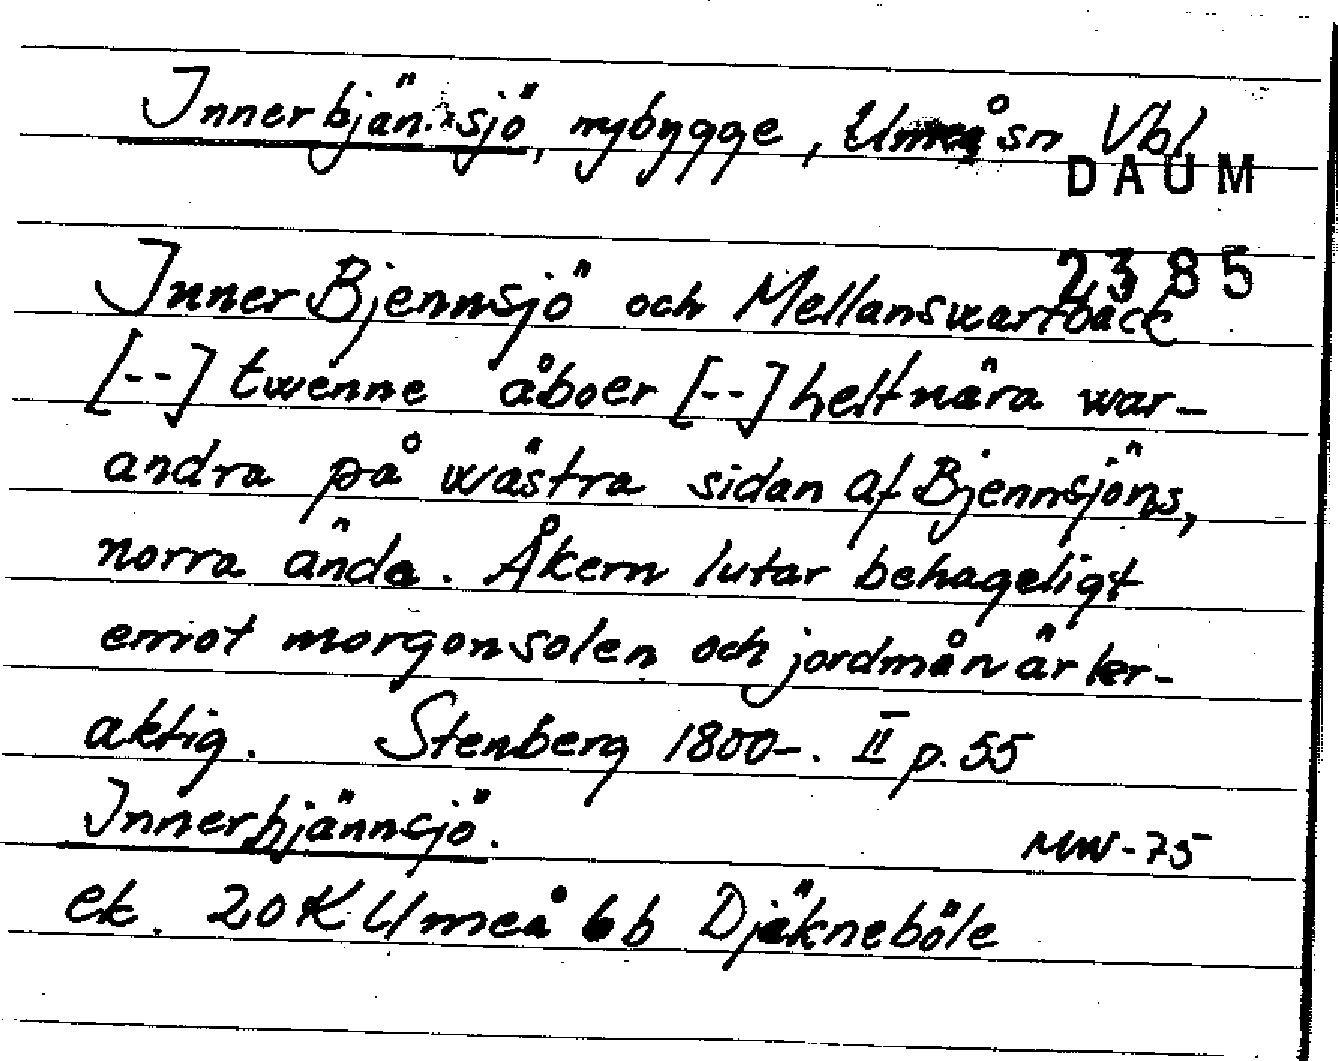 Innerbjän-sjö, nybygge, Umeå sn Vbl
DAUM
2385
Inner Bjennsjö och Mellanswartbäck
[--] twenne åboer [--] helt nära war-
andra på wästra sidan af Bjennsjöns,
norra ände. Åkern lutar behageligt
emot morgonsolen och jordmån är ler-
aktig. Stenberg 1800-. II p. 55
Innerbjännsjö. MW-75
ek. 20K Umeå 6b Djäkneböle